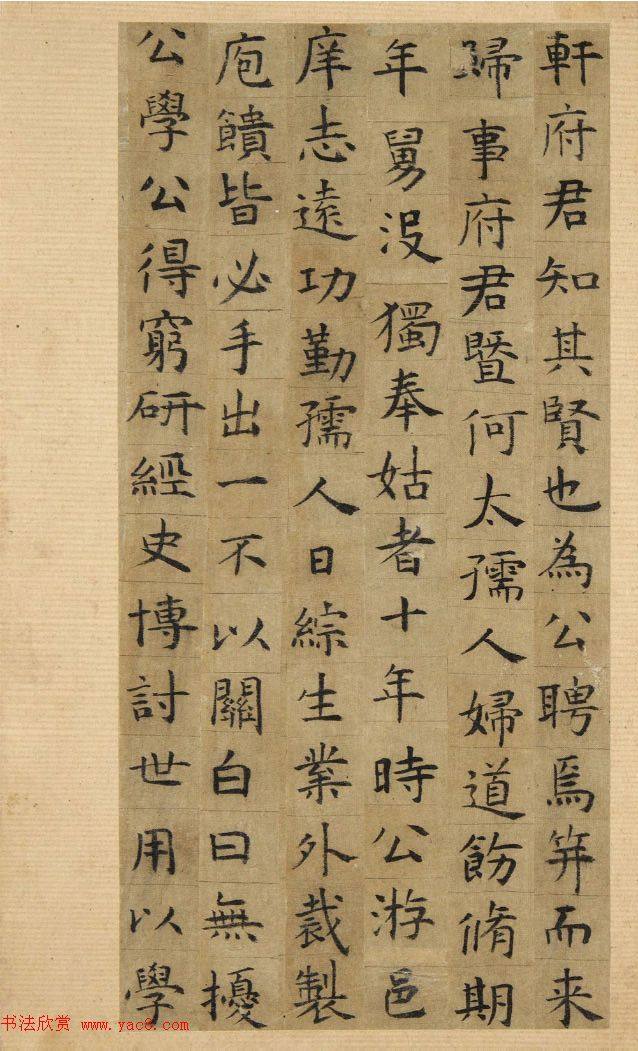 軒府君知其賢也為公聘焉筓而来
歸事府君暨何太孺人婦道飭脩期
年舅没獨奉姑者十年時公游邑
庠志遠功勤孺人日綜生業外裁製
庖饋皆必手出一不以關白曰無擾
公學公得窮研經史博討世用以學
书法欣赏 www.yac8.com